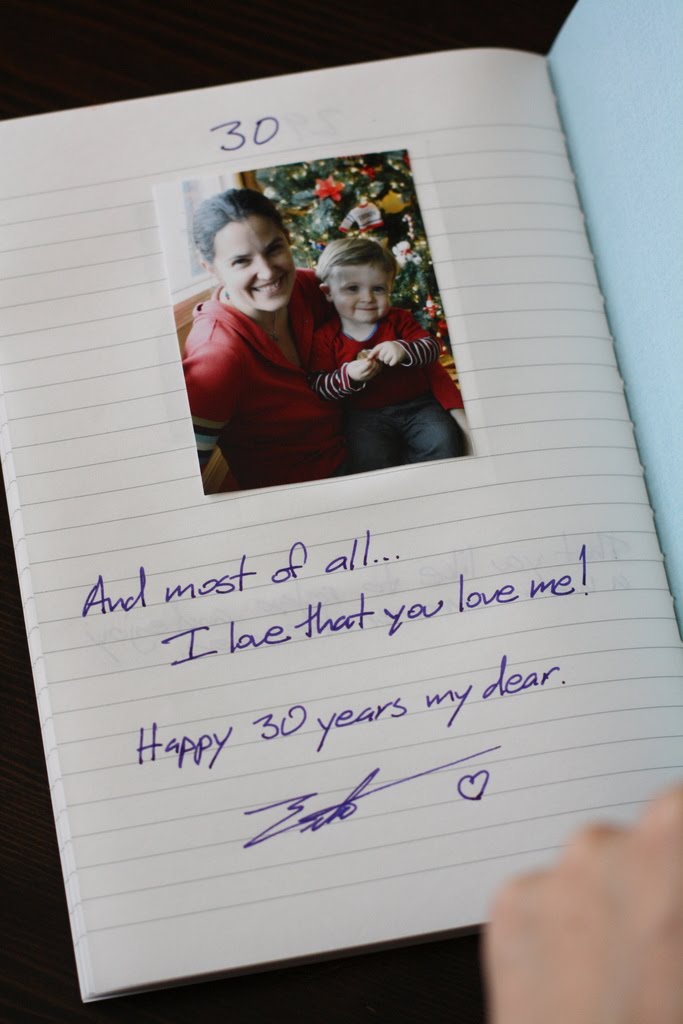 30
And most of all...
I love that you love me!
Happy 30 years my dear.